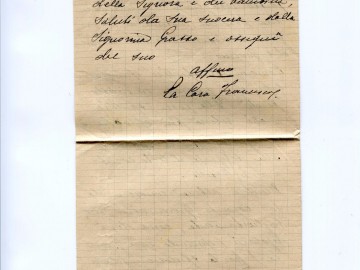 della Signora e dei bambini,
saluti da sua suocera e dalla
Signorina Grasso e ossequi
dal suo
affmo
La Cara Francesco